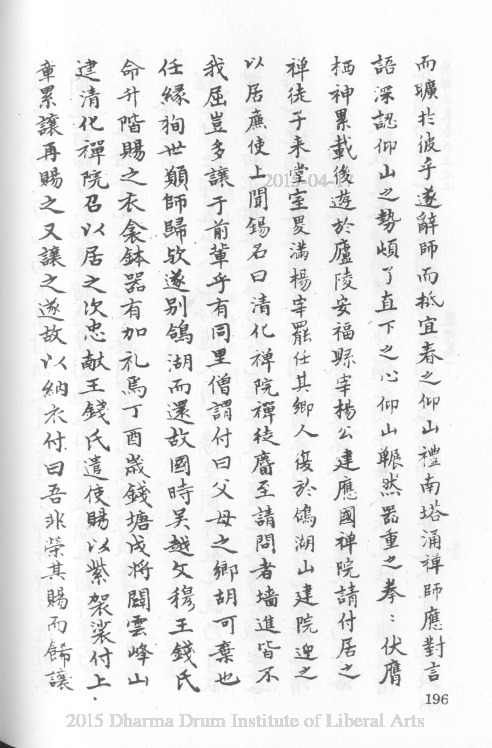 而曠於彼乎遂辭師而抵宜春之仰山禮南塔涌禪師應對言
語深認仰山之勢頓了直下之心仰山囅然器重之拳〻伏膺
栖神累載後遊於廬陵安福縣宰楊公建應國禪院請付居之
禪徒子来堂室畟滿楊宰罷任其鄉人復於鴿湖山建院迎之
以居廉使上聞錫名曰清化禪院禪徒麕至請問者墻進皆不
我屈豈多讓于前輩乎有同里僧謂付曰父母之鄉胡可棄也
任緣徇世願師歸欤遂别鴿湖而還故國時吴越文穆王錢氏
命升階賜之衣衾鉢器有加礼焉丁酉歲錢塘戍將闢雲峰山
建清化禪院召以居之次忠献王錢氏遣使賜以紫袈裟付上
章累讓再賜之又讓之遂故以納衣付曰吾非榮其賜而餙讓
196
2015-04-17
2015 Dharma Drum Institute of Liberal Arts